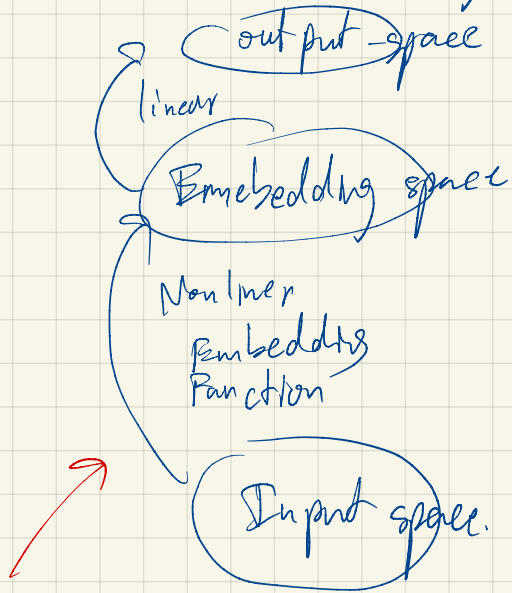 output space
linear
Emebedding space
Nonliner
Embedding
Function
Input space.